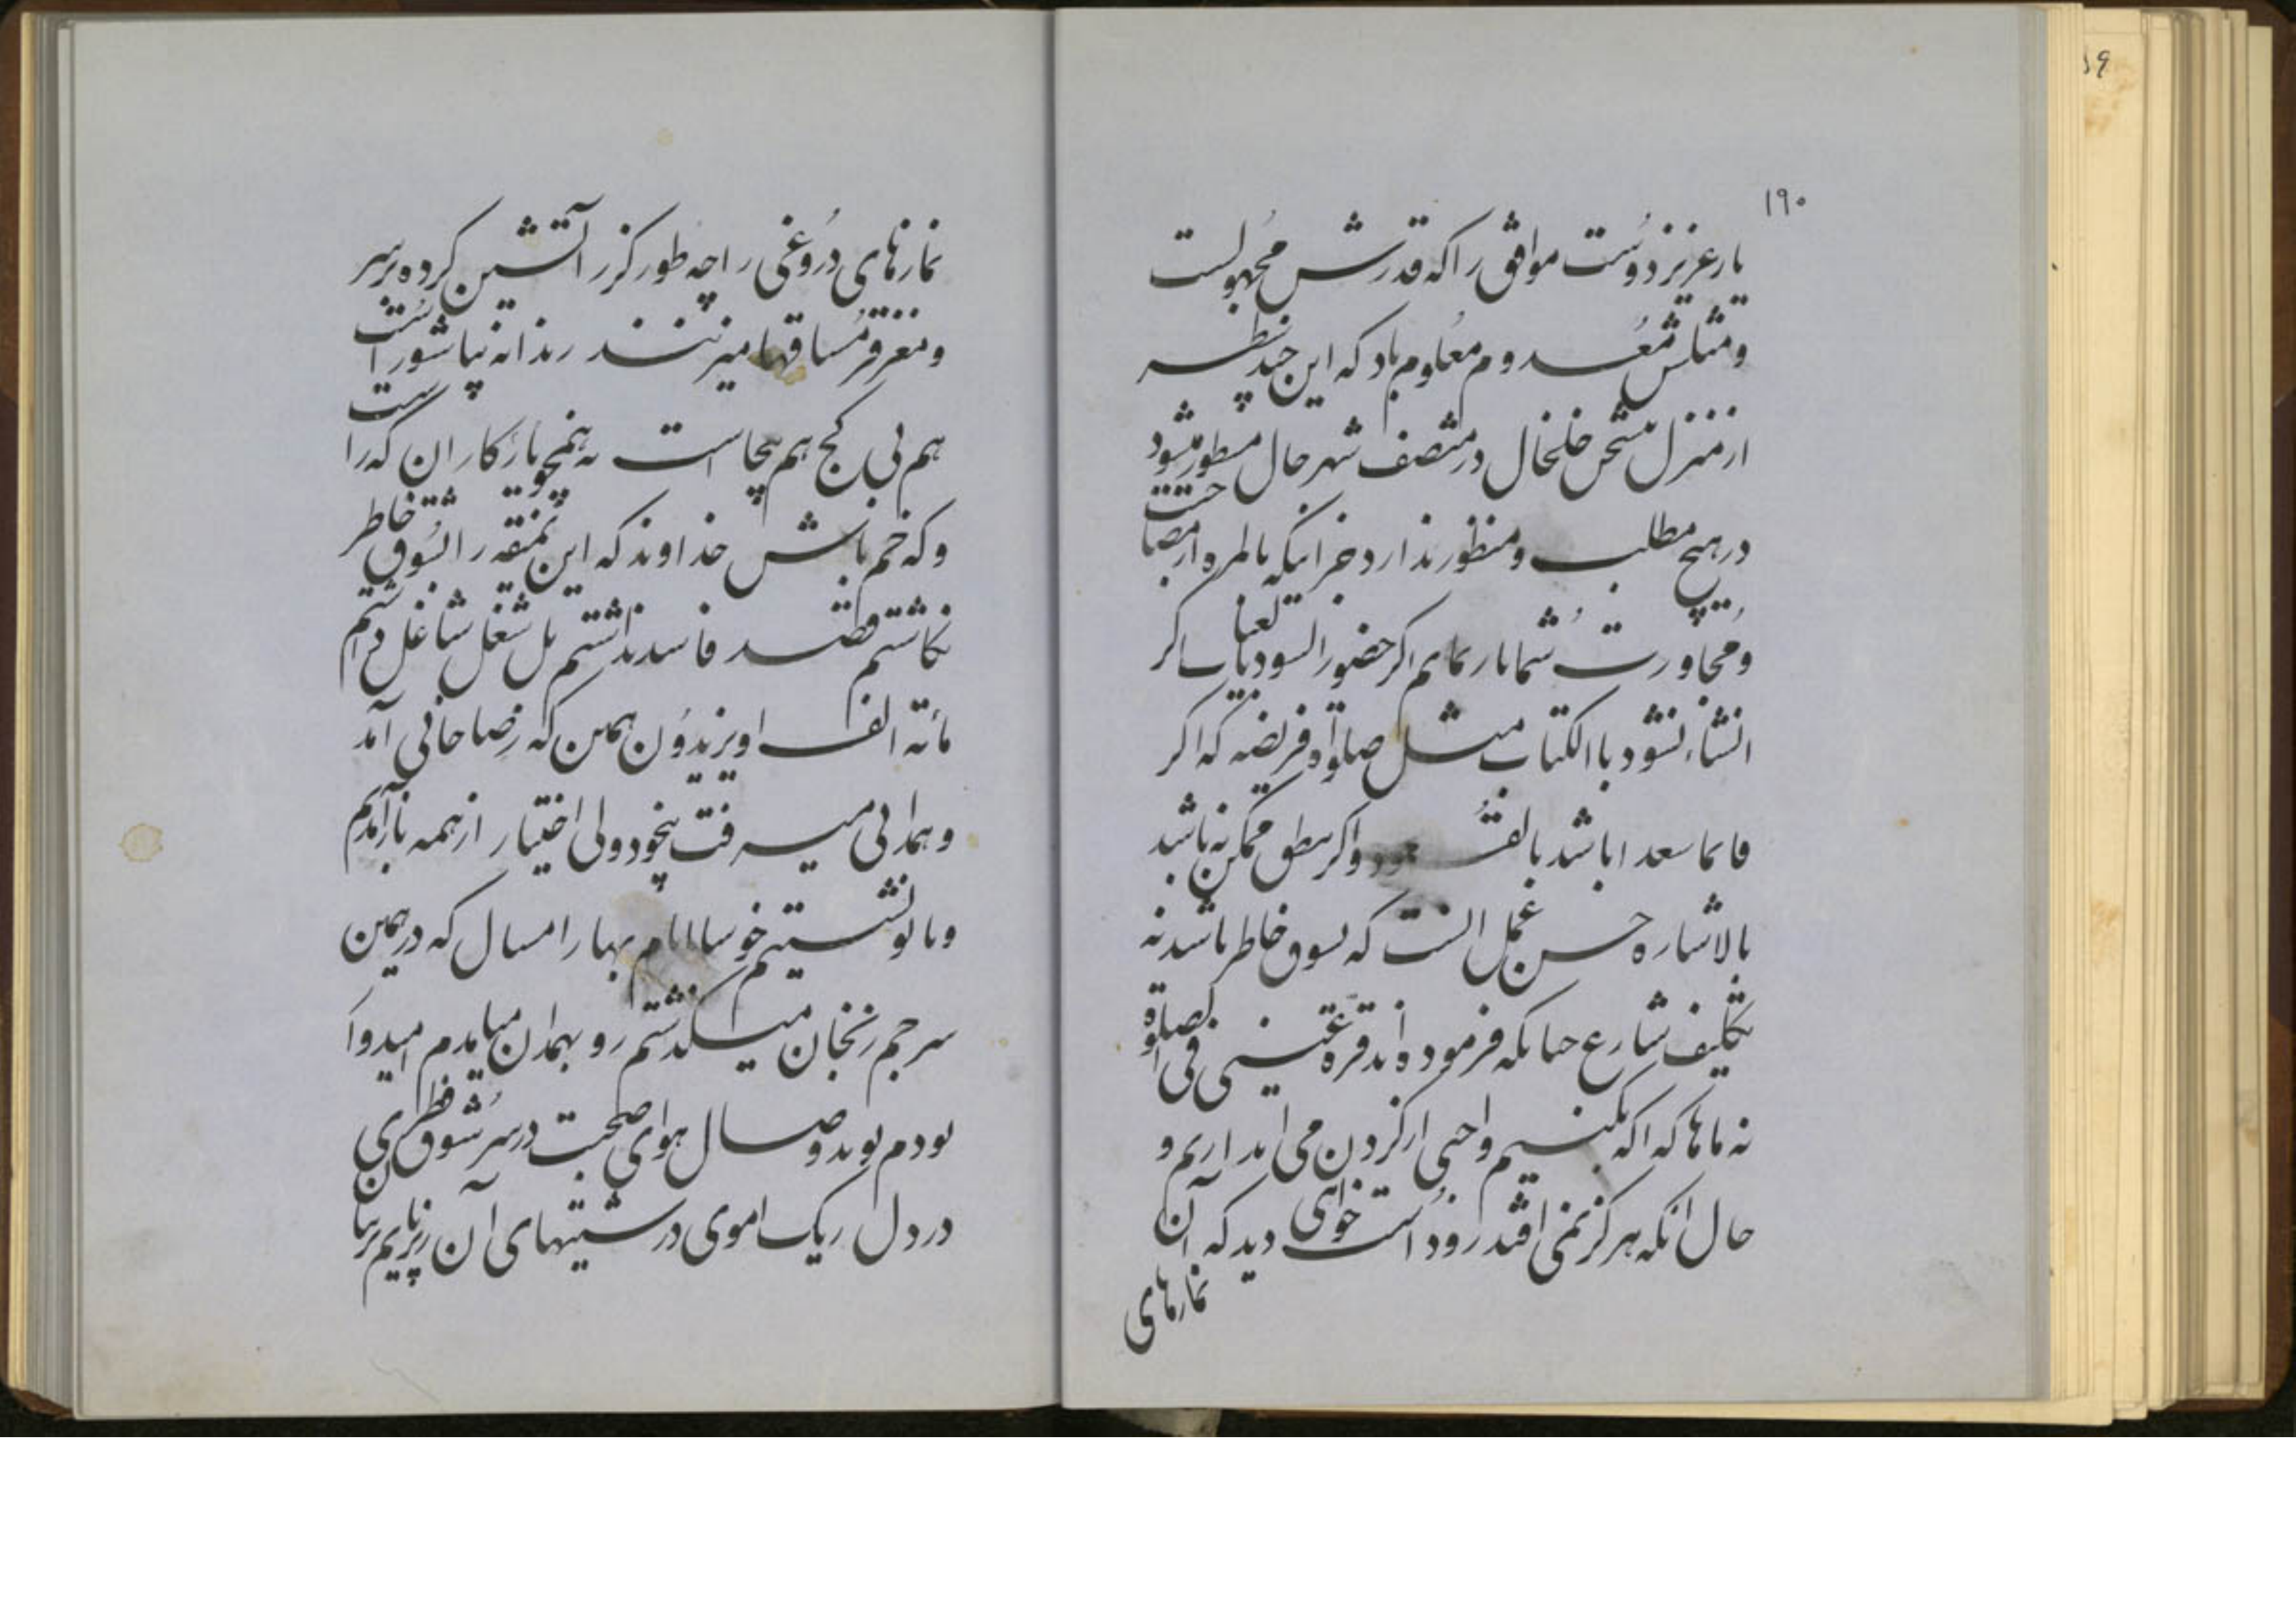 ۱۹۰
یار عزیز دوست موافق را که قدرش مجهولست
و مثلش معدوم معلوم باد که این چند سطر
از منزل خلخال در منتصف شهر حال مسطور میشود
در هیچ مطلب و منظور ندارد جز اینکه بالمره از مصاحبت
و مجاورت شما یار نمایم اگر حضور السود اگر
انشاء نشود با الکتاب مثل صلوة فریضه که اگر
قائما باشد واگر ممکن نباشد
بالاشاره حسن عمل انست که بسوق خاطر باشد نه
تکلیف شارع چنانکه فرموده اند قرة عینی فی الصلوة
نه ماها که اگر بکنیم واجبی از گردن می اندازیم و
حال آنکه هرگز نمی افتد زود است خواهی دید که آن
نمازهای
نمازهای دروغی را چه طور گرز آتشین کرده بر سر
و مغز قرمساقها میزنند رندانه نیاشور است
هم بی کج هم بیجاست نه همچو یار کاران که راست
و که خم باش خداوند که این نمیقه را بشوق خاطر
نگاشتم قصد فاسد نداشتم بل شغل شاغل داشتم
مائة الف او یزیدون همین که رضا خانی آمد
و همدانی میرفت بیخود و بی اختیار از همه باز آمدم
و با تو نشستیم خوشا ایام بهار امسال که در همین
سر چم زنجان میگذشتم رو بهمدان میآمدم امیدوار
بودم نوید وصال هوای صحبت در سر شوق فطری
در دل ریک اموی درشتیهای آن زیر پایم پرنیان